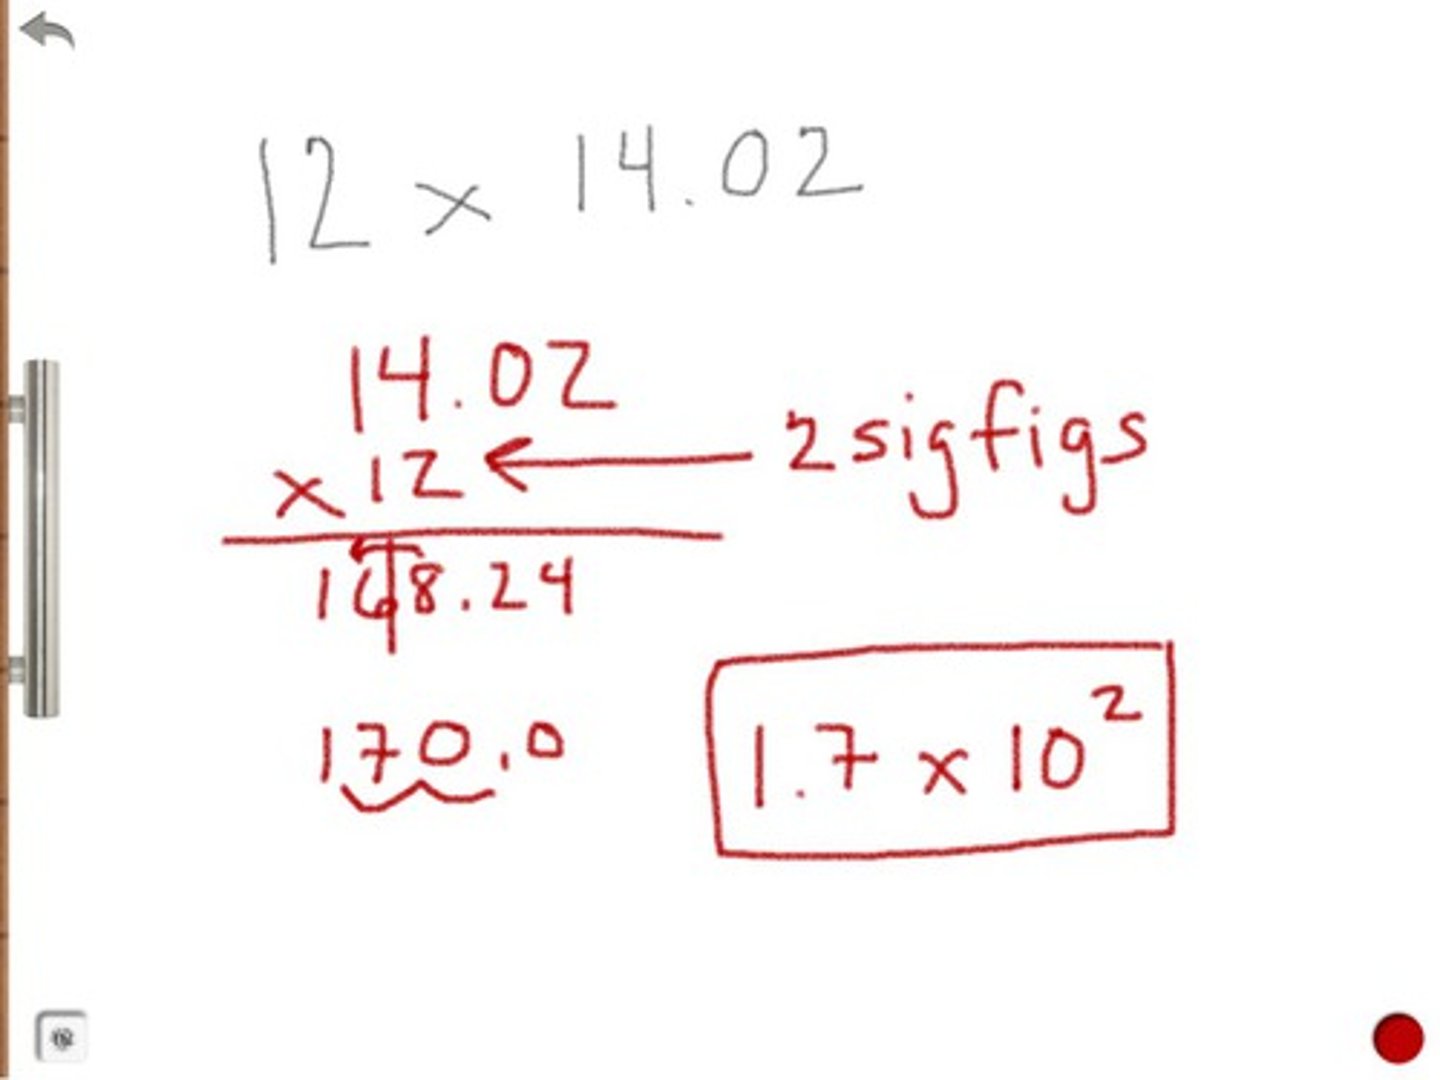 12 x 14.02
14.02
x 12 ← 2 sig figs
168.24
170.0
1.7 x 10²